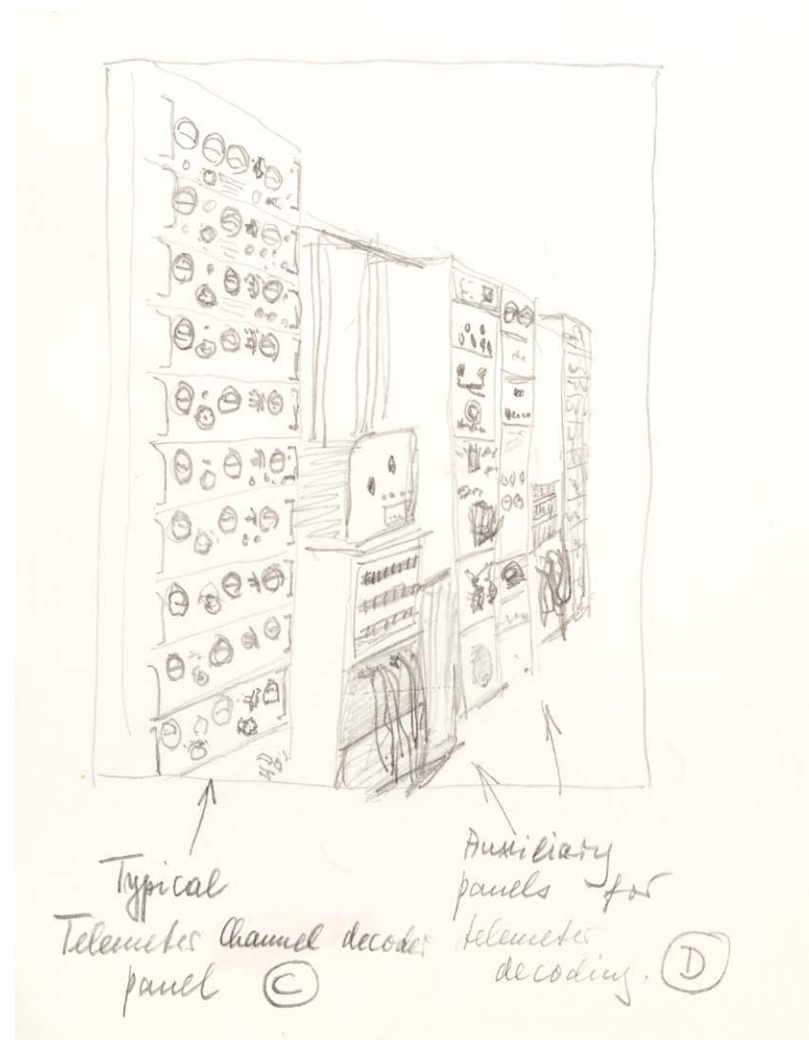 Typical
Telemeter Channel decoder
panel C
Auxiliary
panels for
telemeter
decoding. D